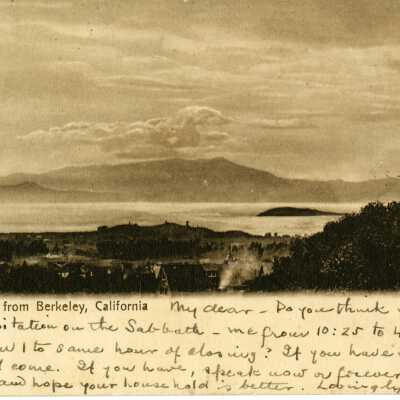 from Berkeley, California My dear - Do you think
itation on the Sabbath - me from 10:25 to 4
1 to same hour of closing? If you have
come. If you have, speak now or forever
and hope your household is better. Lovingly